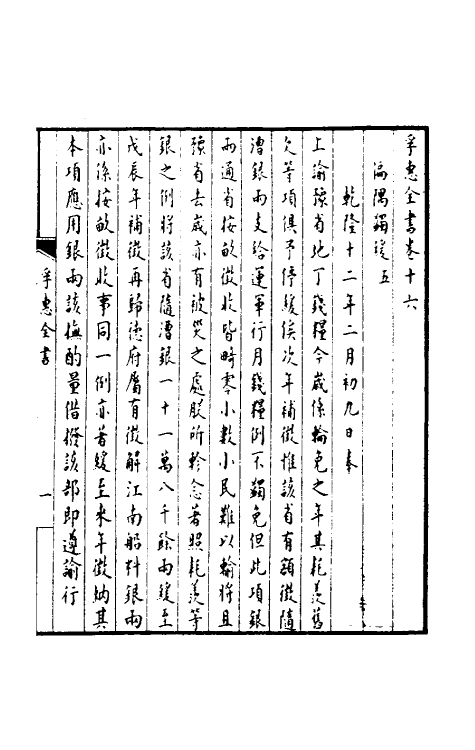 孚惠全書卷十六
偏隅蠲緩五
乾隆十二年二月初九日奉
上諭豫省地丁錢糧今歲係輪免之年其耗羨舊
欠等項俱予停緩俟次年補徵惟該省有額徵隨
漕銀兩支給運軍行月錢糧例不蠲免但此項銀
兩通省按畝徵收皆畸零小數小民難以輸將且
豫省去歲亦有被災之處朕所軫念著照耗羨等
銀之例將該省隨漕銀一十一萬八千餘兩緩至
戊辰年補徵再歸德府屬有徵解江南船料銀兩
亦係按畝徵收事同一例亦著緩至來年徵納其
本項應用銀兩該撫酌量借撥該部即遵諭行
孚惠全書
一